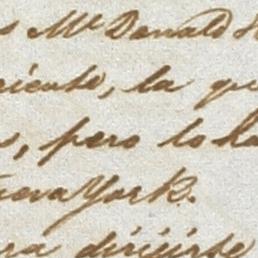 s Mr Donald H
riente, la que
s, pero lo ha
ueva York.
ra dirijirse